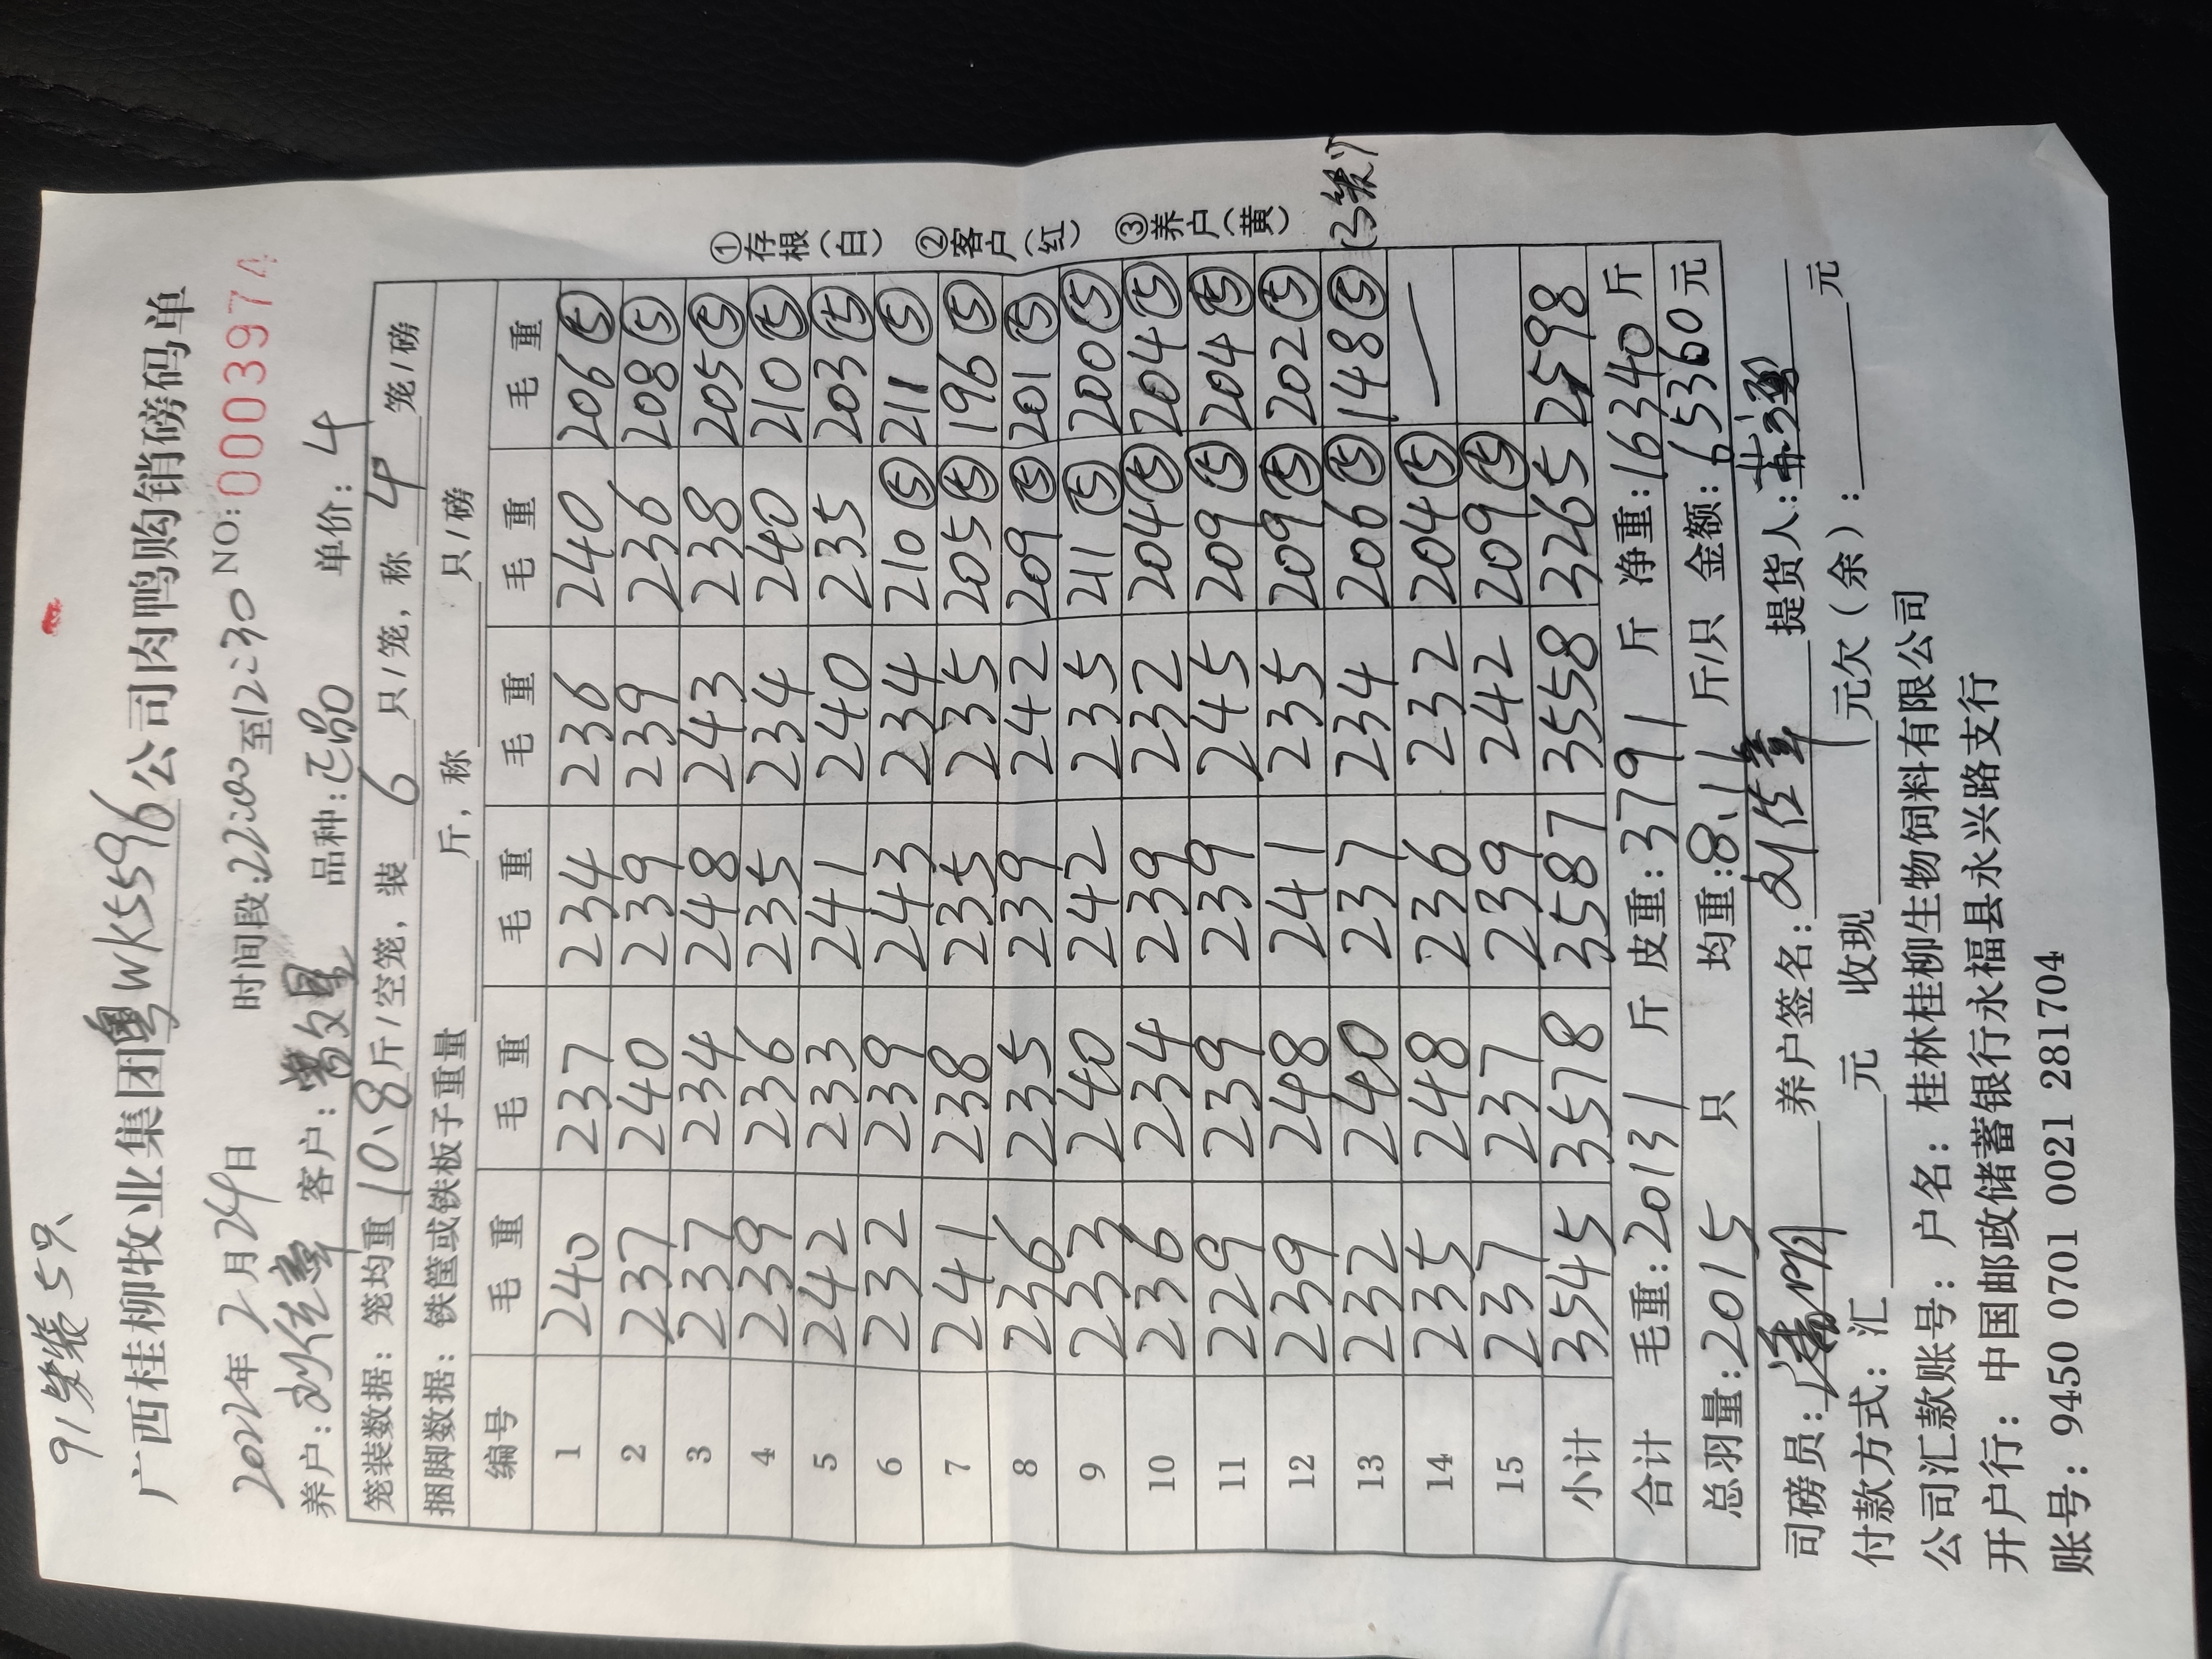 91笼装5只
广西桂柳牧业集团粤WK5596公司肉鸭购销磅码单
2022年2月24日 时间段:22:00至12:30 NO:0003974
养户:刘传章 客户: 品种:正品 单价:4
笼装数据:笼均重10.8斤/空笼,装6只/笼,称4笼/磅
捆脚数据:铁筐或铁板子重量 斤,称 只/磅
编号 毛重 毛重 毛重 毛重 毛重 毛重
1 240 237 234 236 240 206⑤
2 237 240 239 239 236 208⑤
3 237 234 248 243 238 205⑤
4 239 236 235 234 240 210⑤
5 242 233 241 240 235 203⑤
6 232 239 243 234 210⑤ 211⑤
7 241 238 235 235 205⑤ 196⑤
8 236 235 239 242 209⑤ 201⑤
9 233 240 242 235 211⑤ 200⑤
10 236 234 239 232 204⑤ 204⑤
11 229 239 239 245 209⑤ 204⑤
12 239 248 241 235 209⑤ 202⑤
13 232 240 237 234 206⑤ 148⑤ (3笼)
14 235 248 236 232 204⑤ —
15 237 237 239 242 209⑤
小计 3545 3578 3587 3558 3265 2598
合计 毛重:20131斤 皮重:3791斤 净重:16340斤
总羽量:2015只 均重:8.11斤/只 金额:65360元
司磅员: 养户签名:刘传章 提货人:
付款方式:汇 元 收现 元欠(余): 元
公司汇款账号:户名:桂林桂柳生物饲料有限公司
开户行:中国邮政储蓄银行永福县永兴路支行
账号:9450 0701 0021 281704
①存根(白) ②客户(红) ③养户(黄)